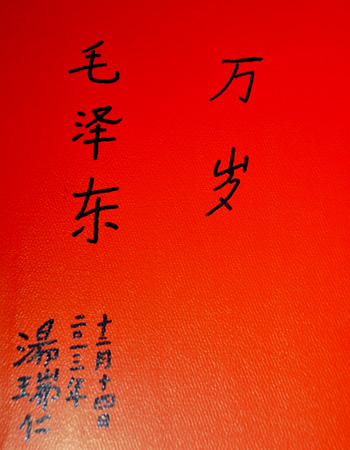 毛泽东
万岁
湯瑞仁
二〇一三年
十二月十四日